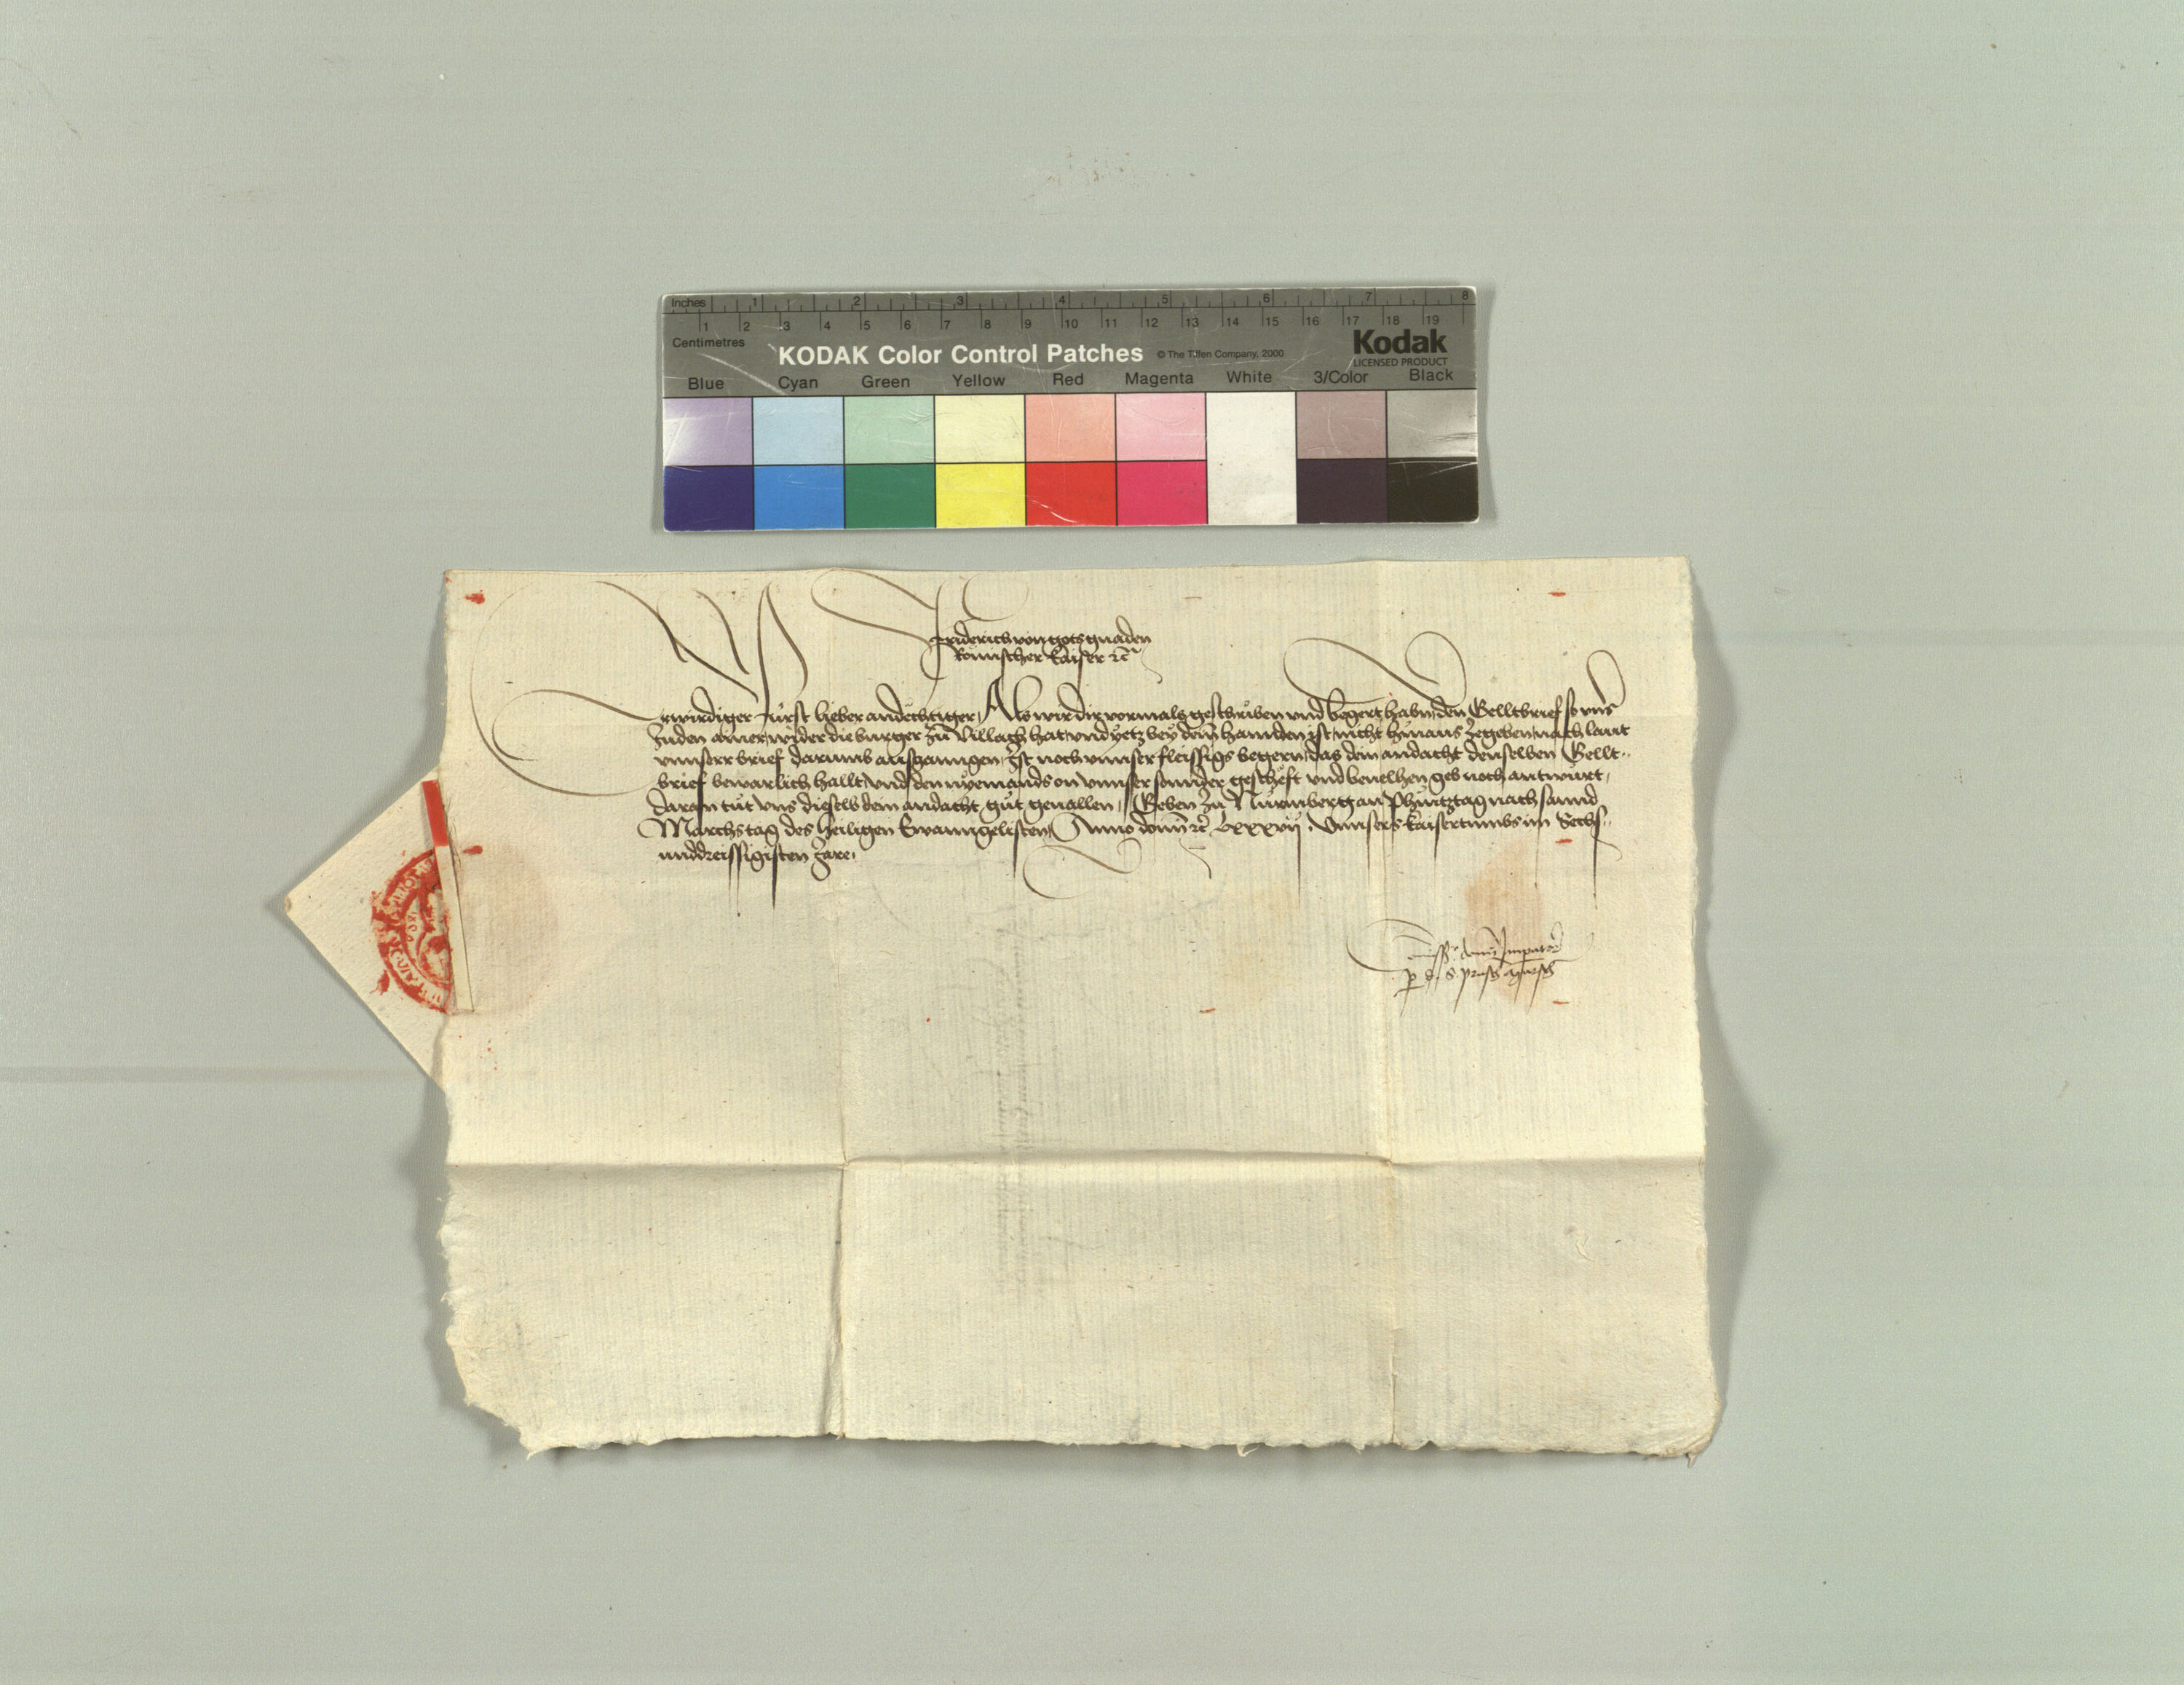 Inches 1 2 3 4 5 6 7 8
1 2 3 4 5 6 7 8 9 10 11 12 13 14 15 16 17 18 19
Centimetres
KODAK Color Control Patches © The Tiffen Company, 2000 Kodak
LICENSED PRODUCT
Blue Cyan Green Yellow Red Magenta White 3/Color Black
Friderich von gots gnaden
Römischer Kaiser etc
Erwirdiger Fürst lieber andechtiger, Als wir dir vormals geschriben und begert habn, den Gelltbrief so
wider die burger zu Villach hat, und yetz bey dein hannden ist, nicht hinaus zegeben, nach laut
unnserr brief darumb ausganngen, Ist noch unnser fleissigs begern, das dein andacht denselben Gellt-
brief bewarlich hallt, und den nyemands on unnser sonnder geschefft und bevelhen geb noch antwurt,
daran tut uns dieselb dein andacht gut gevallen, Geben zu Nuremberg an Phintztag nach sannd
Marchstag des heiligen Ewanngelisten, Anno domini etc Lxxxvii. Unnsers Kaisertumbs im Sechs-
unddreissigisten Jare.
domini Imperatoris
p